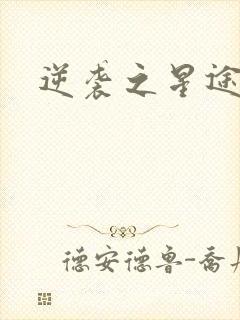 逆袭之星途
德安德鲁-乔